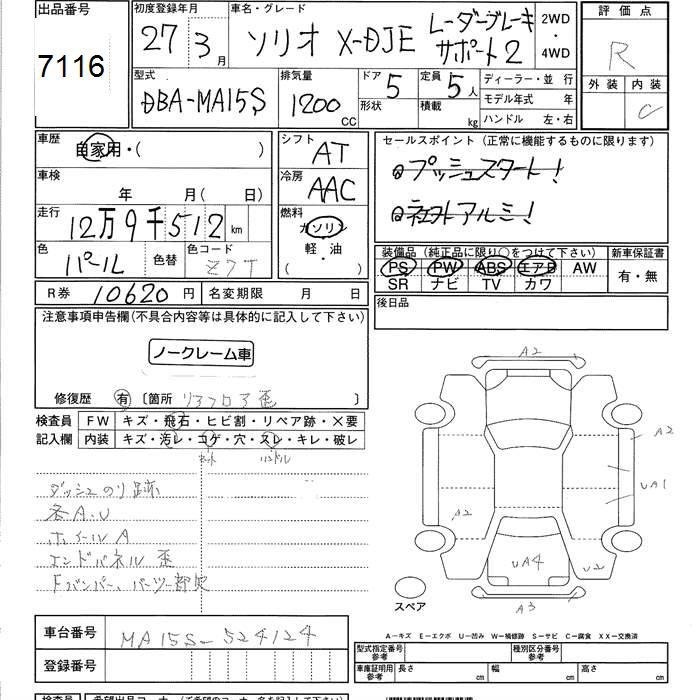 出品番号
7116
初度登録年月
27 3月
車名・グレード
ソリオ X-DJE レーダーブレーキ
サポート2
2WD
・
4WD
評価点
R
外装 内装
C
型式
DBA-MA15S
排気量
1200 CC
ドア 5
形状
定員 5人
積載 kg
ディーラー・並行
モデル年式 年
ハンドル 左・右
車歴
自家用・( )
車検
年 月( 日)
走行
12万9千512 km
色
パール
色替
色コード
Z7T
シフト
AT
冷房
AAC
燃料
ガソリン
軽・油
( )
セールスポイント(正常に機能するものに限ります)
プッシュスタート!
アルミ!
装備品(純正品に限り○をつけて下さい)
PS PW ABS エアB AW
SR ナビ TV カワ
新車保証書
有・無
R券 10620円 名変期限 月 日
後日品
注意事項申告欄(不具合内容等は具体的に記入して下さい)
ノークレーム車
修復歴 有 〔箇所 リアフロア歪 〕
検査員
記入欄
FW キズ・飛石・ヒビ割・リペア跡・×要
内装 キズ・汚レ・コゲ・穴・スレ・キレ・破レ
シート ハンドル
ダッシュのり跡
各A.U
ホイールA
エンドパネル歪
Fバンパー、パーツ一部欠
A2
A2
UA1
A2
UA4
U2
A3
スペア
A-キズ E-エクボ U-凹み W-補修跡 S-サビ C-腐食 XX-交換済
車台番号 MA15S-524124
登録番号
型式指定番号
参考
種別区分番号
参考
車庫証明用
参考
長さ cm 幅 cm 高さ cm